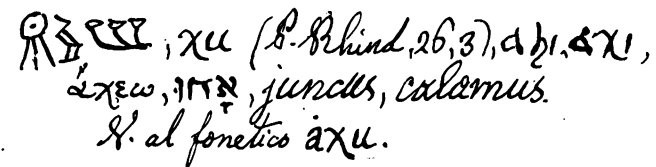 , χu (P. Rhind, 26, 3), ⲁϧⲓ, ⲁⲭⲓ,
ἄχεω, אָחוּ, juncus, calamus.
V. al fonetico ȧχu.